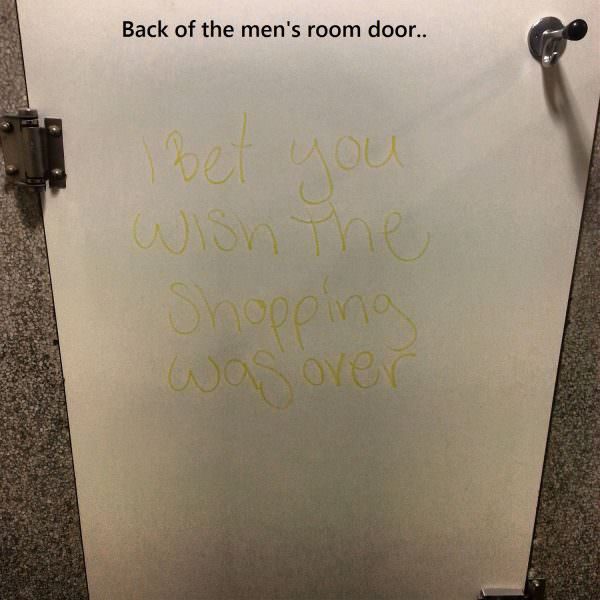 Back of the men's room door..
I Bet you
wish the
Shopping
was over